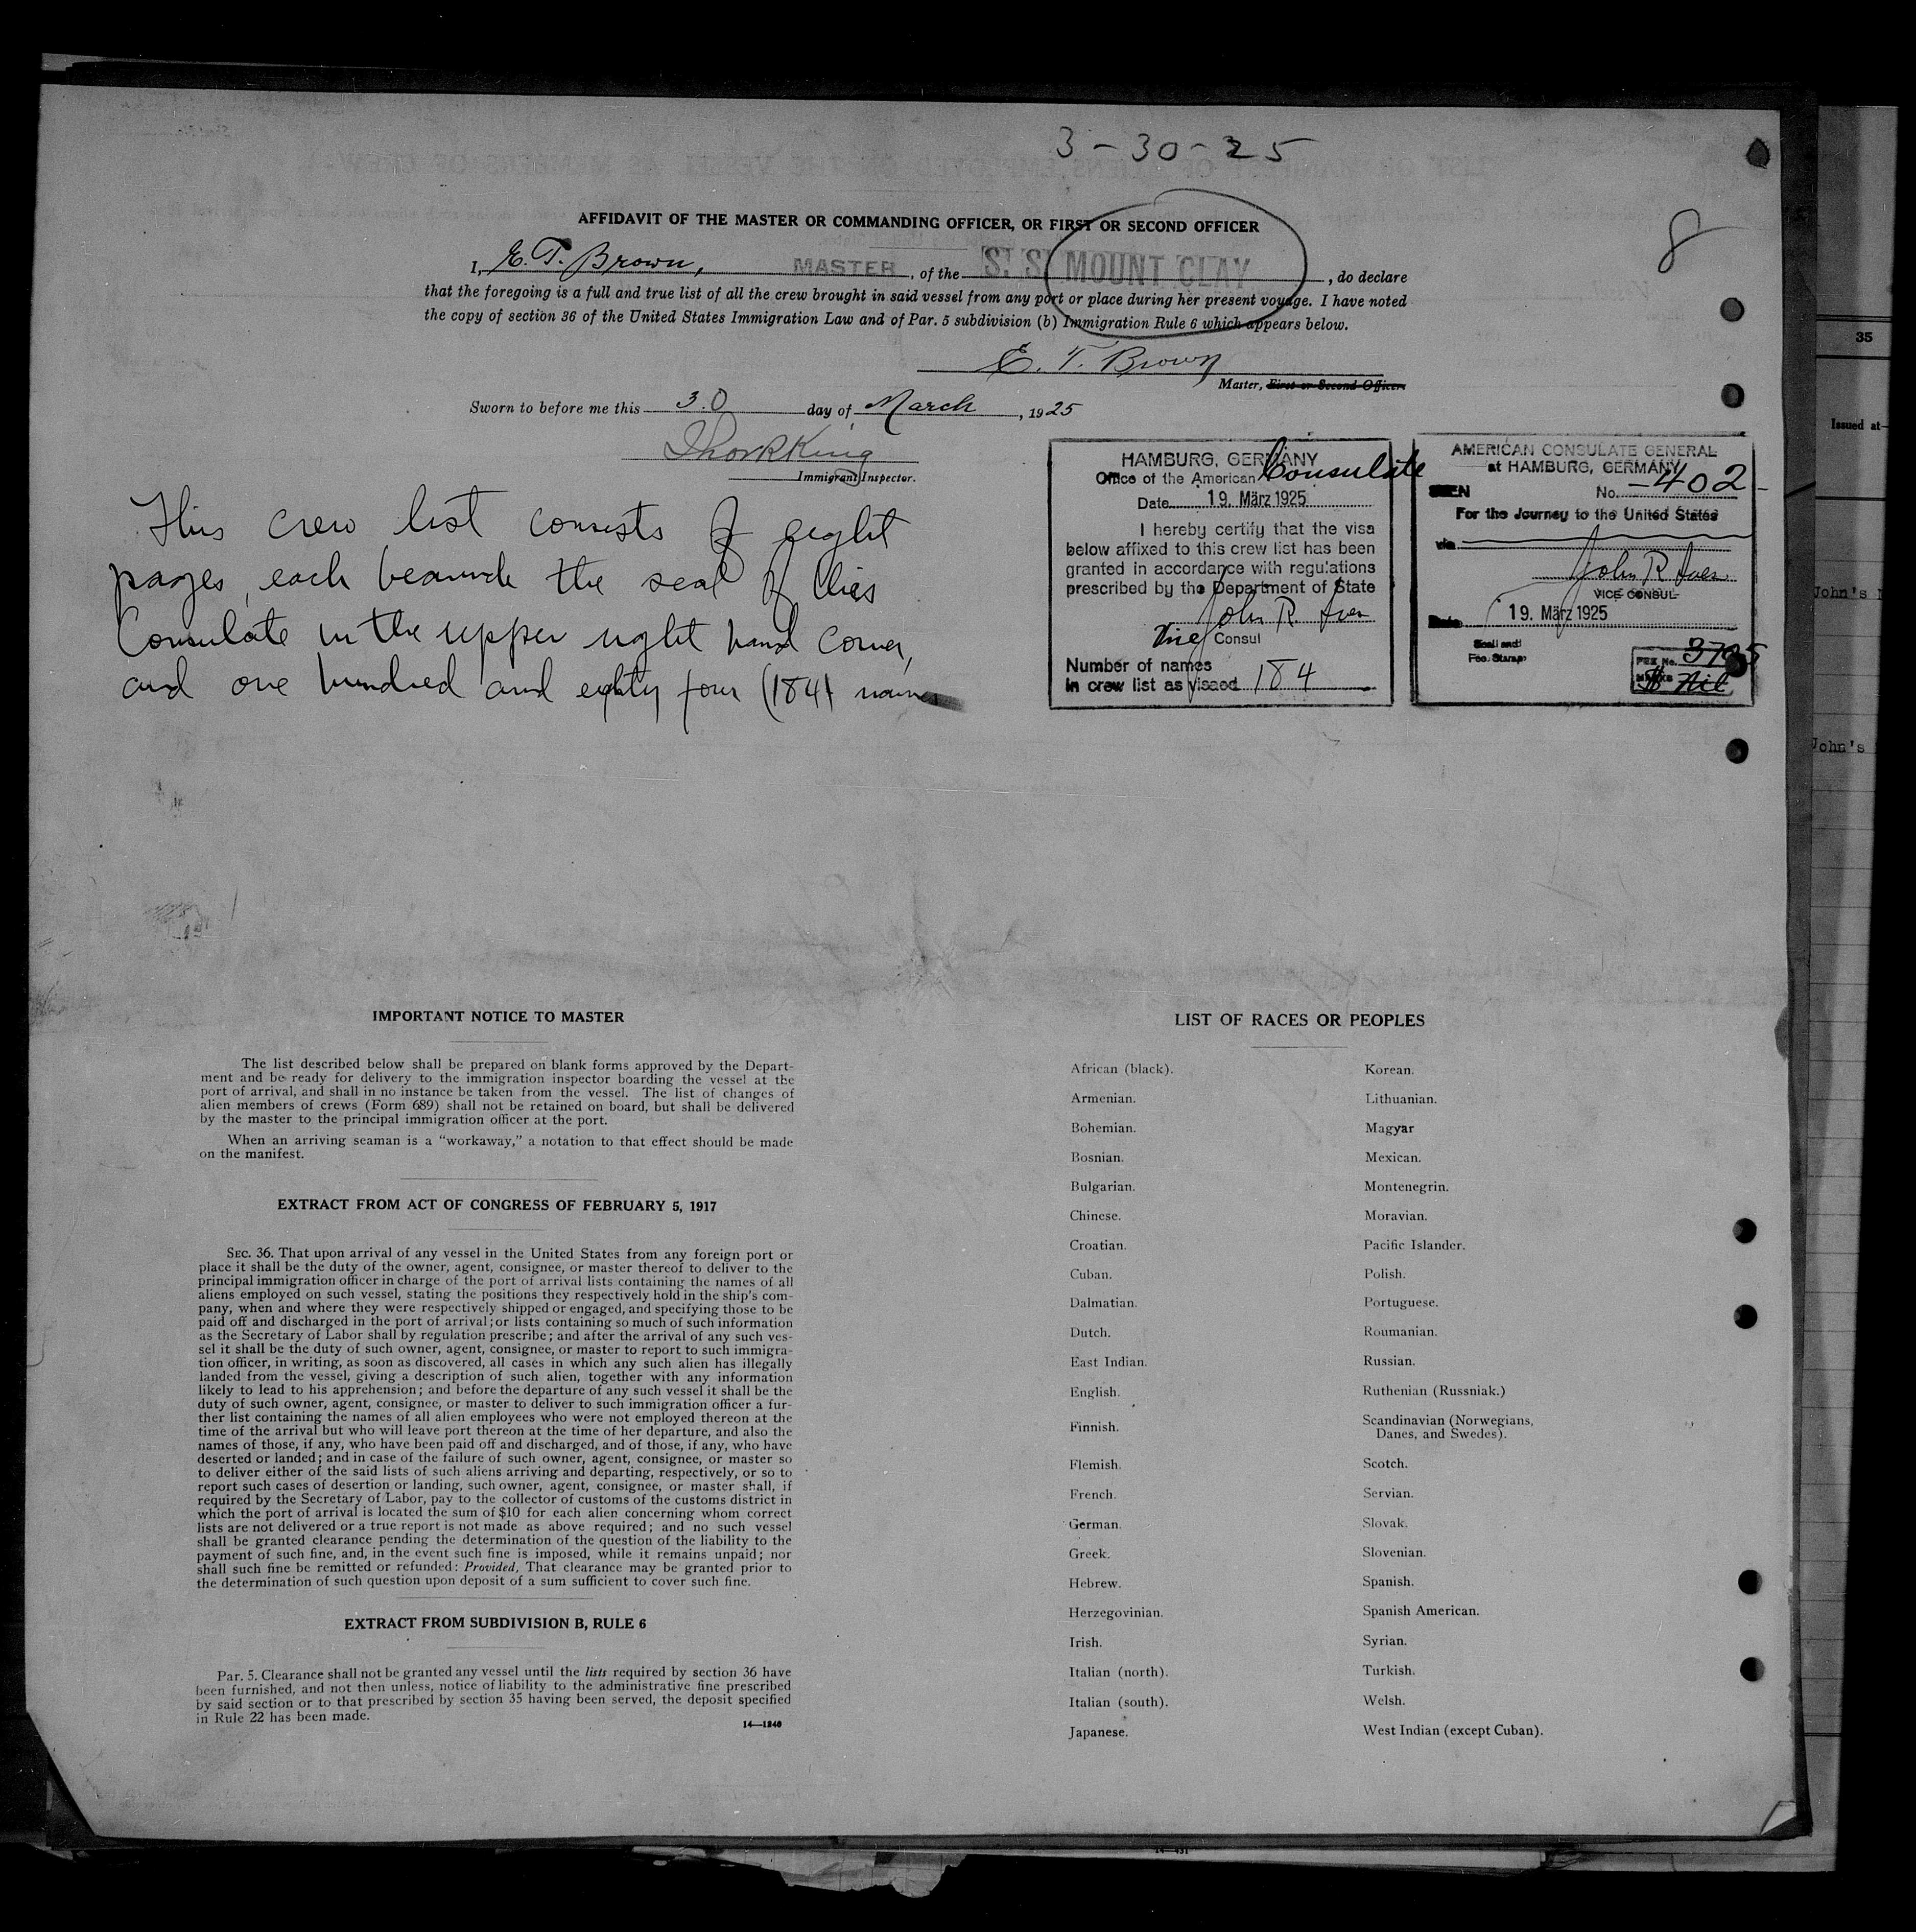 3-30-25
8
AFFIDAVIT OF THE MASTER OR COMMANDING OFFICER, OR FIRST OR SECOND OFFICER
I, E. T. Brown, MASTER, of the S. S. MOUNT CLAY, do declare
that the foregoing is a full and true list of all the crew brought in said vessel from any port or place during her present voyage. I have noted
the copy of section 36 of the United States Immigration Law and of Par. 5 subdivision (b) Immigration Rule 6 which appears below.
E. T. Brown
Master, First or Second Officer.
Sworn to before me this 30 day of March, 1925
Immigrant Inspector.
This crew list consists of eight
pages, each the seal of this
Consulate in the upper right hand corner,
and one hundred and eighty four (184) names
HAMBURG, GERMANY
Office of the American Consulate
Date 19. März 1925
I hereby certify that the visa
below affixed to this crew list has been
granted in accordance with regulations
prescribed by the Department of State
John R.
Vice Consul
Number of names
in crew list as visaed 184
AMERICAN CONSULATE GENERAL
at HAMBURG, GERMANY
SEEN No. -402-
For the Journey to the United States
via
John R.
VICE CONSUL
Date 19. März 1925
Seal and
Fee Stamp
FEE No. 3795
$ Nil
35
Issued at
John's
John's
IMPORTANT NOTICE TO MASTER
The list described below shall be prepared on blank forms approved by the Depart-
ment and be ready for delivery to the immigration inspector boarding the vessel at the
port of arrival, and shall in no instance be taken from the vessel. The list of changes of
alien members of crews (Form 689) shall not be retained on board, but shall be delivered
by the master to the principal immigration officer at the port.
When an arriving seaman is a "workaway," a notation to that effect should be made
on the manifest.
EXTRACT FROM ACT OF CONGRESS OF FEBRUARY 5, 1917
SEC. 36. That upon arrival of any vessel in the United States from any foreign port or
place it shall be the duty of the owner, agent, consignee, or master thereof to deliver to the
principal immigration officer in charge of the port of arrival lists containing the names of all
aliens employed on such vessel, stating the positions they respectively hold in the ship's com-
pany, when and where they were respectively shipped or engaged, and specifying those to be
paid off and discharged in the port of arrival; or lists containing so much of such information
as the Secretary of Labor shall by regulation prescribe; and after the arrival of any such ves-
sel it shall be the duty of such owner, agent, consignee, or master to report to such immigra-
tion officer, in writing, as soon as discovered, all cases in which any such alien has illegally
landed from the vessel, giving a description of such alien, together with any information
likely to lead to his apprehension; and before the departure of any such vessel it shall be the
duty of such owner, agent, consignee, or master to deliver to such immigration officer a fur-
ther list containing the names of all alien employees who were not employed thereon at the
time of the arrival but who will leave port thereon at the time of her departure, and also the
names of those, if any, who have been paid off and discharged, and of those, if any, who have
deserted or landed; and in case of the failure of such owner, agent, consignee, or master so
to deliver either of the said lists of such aliens arriving and departing, respectively, or so to
report such cases of desertion or landing, such owner, agent, consignee, or master shall, if
required by the Secretary of Labor, pay to the collector of customs of the customs district in
which the port of arrival is located the sum of $10 for each alien concerning whom correct
lists are not delivered or a true report is not made as above required; and no such vessel
shall be granted clearance pending the determination of the question of the liability to the
payment of such fine, and, in the event such fine is imposed, while it remains unpaid; nor
shall such fine be remitted or refunded: Provided, That clearance may be granted prior to
the determination of such question upon deposit of a sum sufficient to cover such fine.
EXTRACT FROM SUBDIVISION B, RULE 6
Par. 5. Clearance shall not be granted any vessel until the lists required by section 36 have
been furnished, and not then unless, notice of liability to the administrative fine prescribed
by said section or to that prescribed by section 35 having been served, the deposit specified
in Rule 22 has been made.
14—1240
LIST OF RACES OR PEOPLES
African (black).
Armenian.
Bohemian.
Bosnian.
Bulgarian.
Chinese.
Croatian.
Cuban.
Dalmatian.
Dutch.
East Indian.
English.
Finnish.
Flemish.
French.
German.
Greek.
Hebrew.
Herzegovinian.
Irish.
Italian (north).
Italian (south).
Japanese.
Korean.
Lithuanian.
Magyar
Mexican.
Montenegrin.
Moravian.
Pacific Islander.
Polish.
Portuguese.
Roumanian.
Russian.
Ruthenian (Russniak.)
Scandinavian (Norwegians,
Danes, and Swedes).
Scotch.
Servian.
Slovak.
Slovenian.
Spanish.
Spanish American.
Syrian.
Turkish.
Welsh.
West Indian (except Cuban).